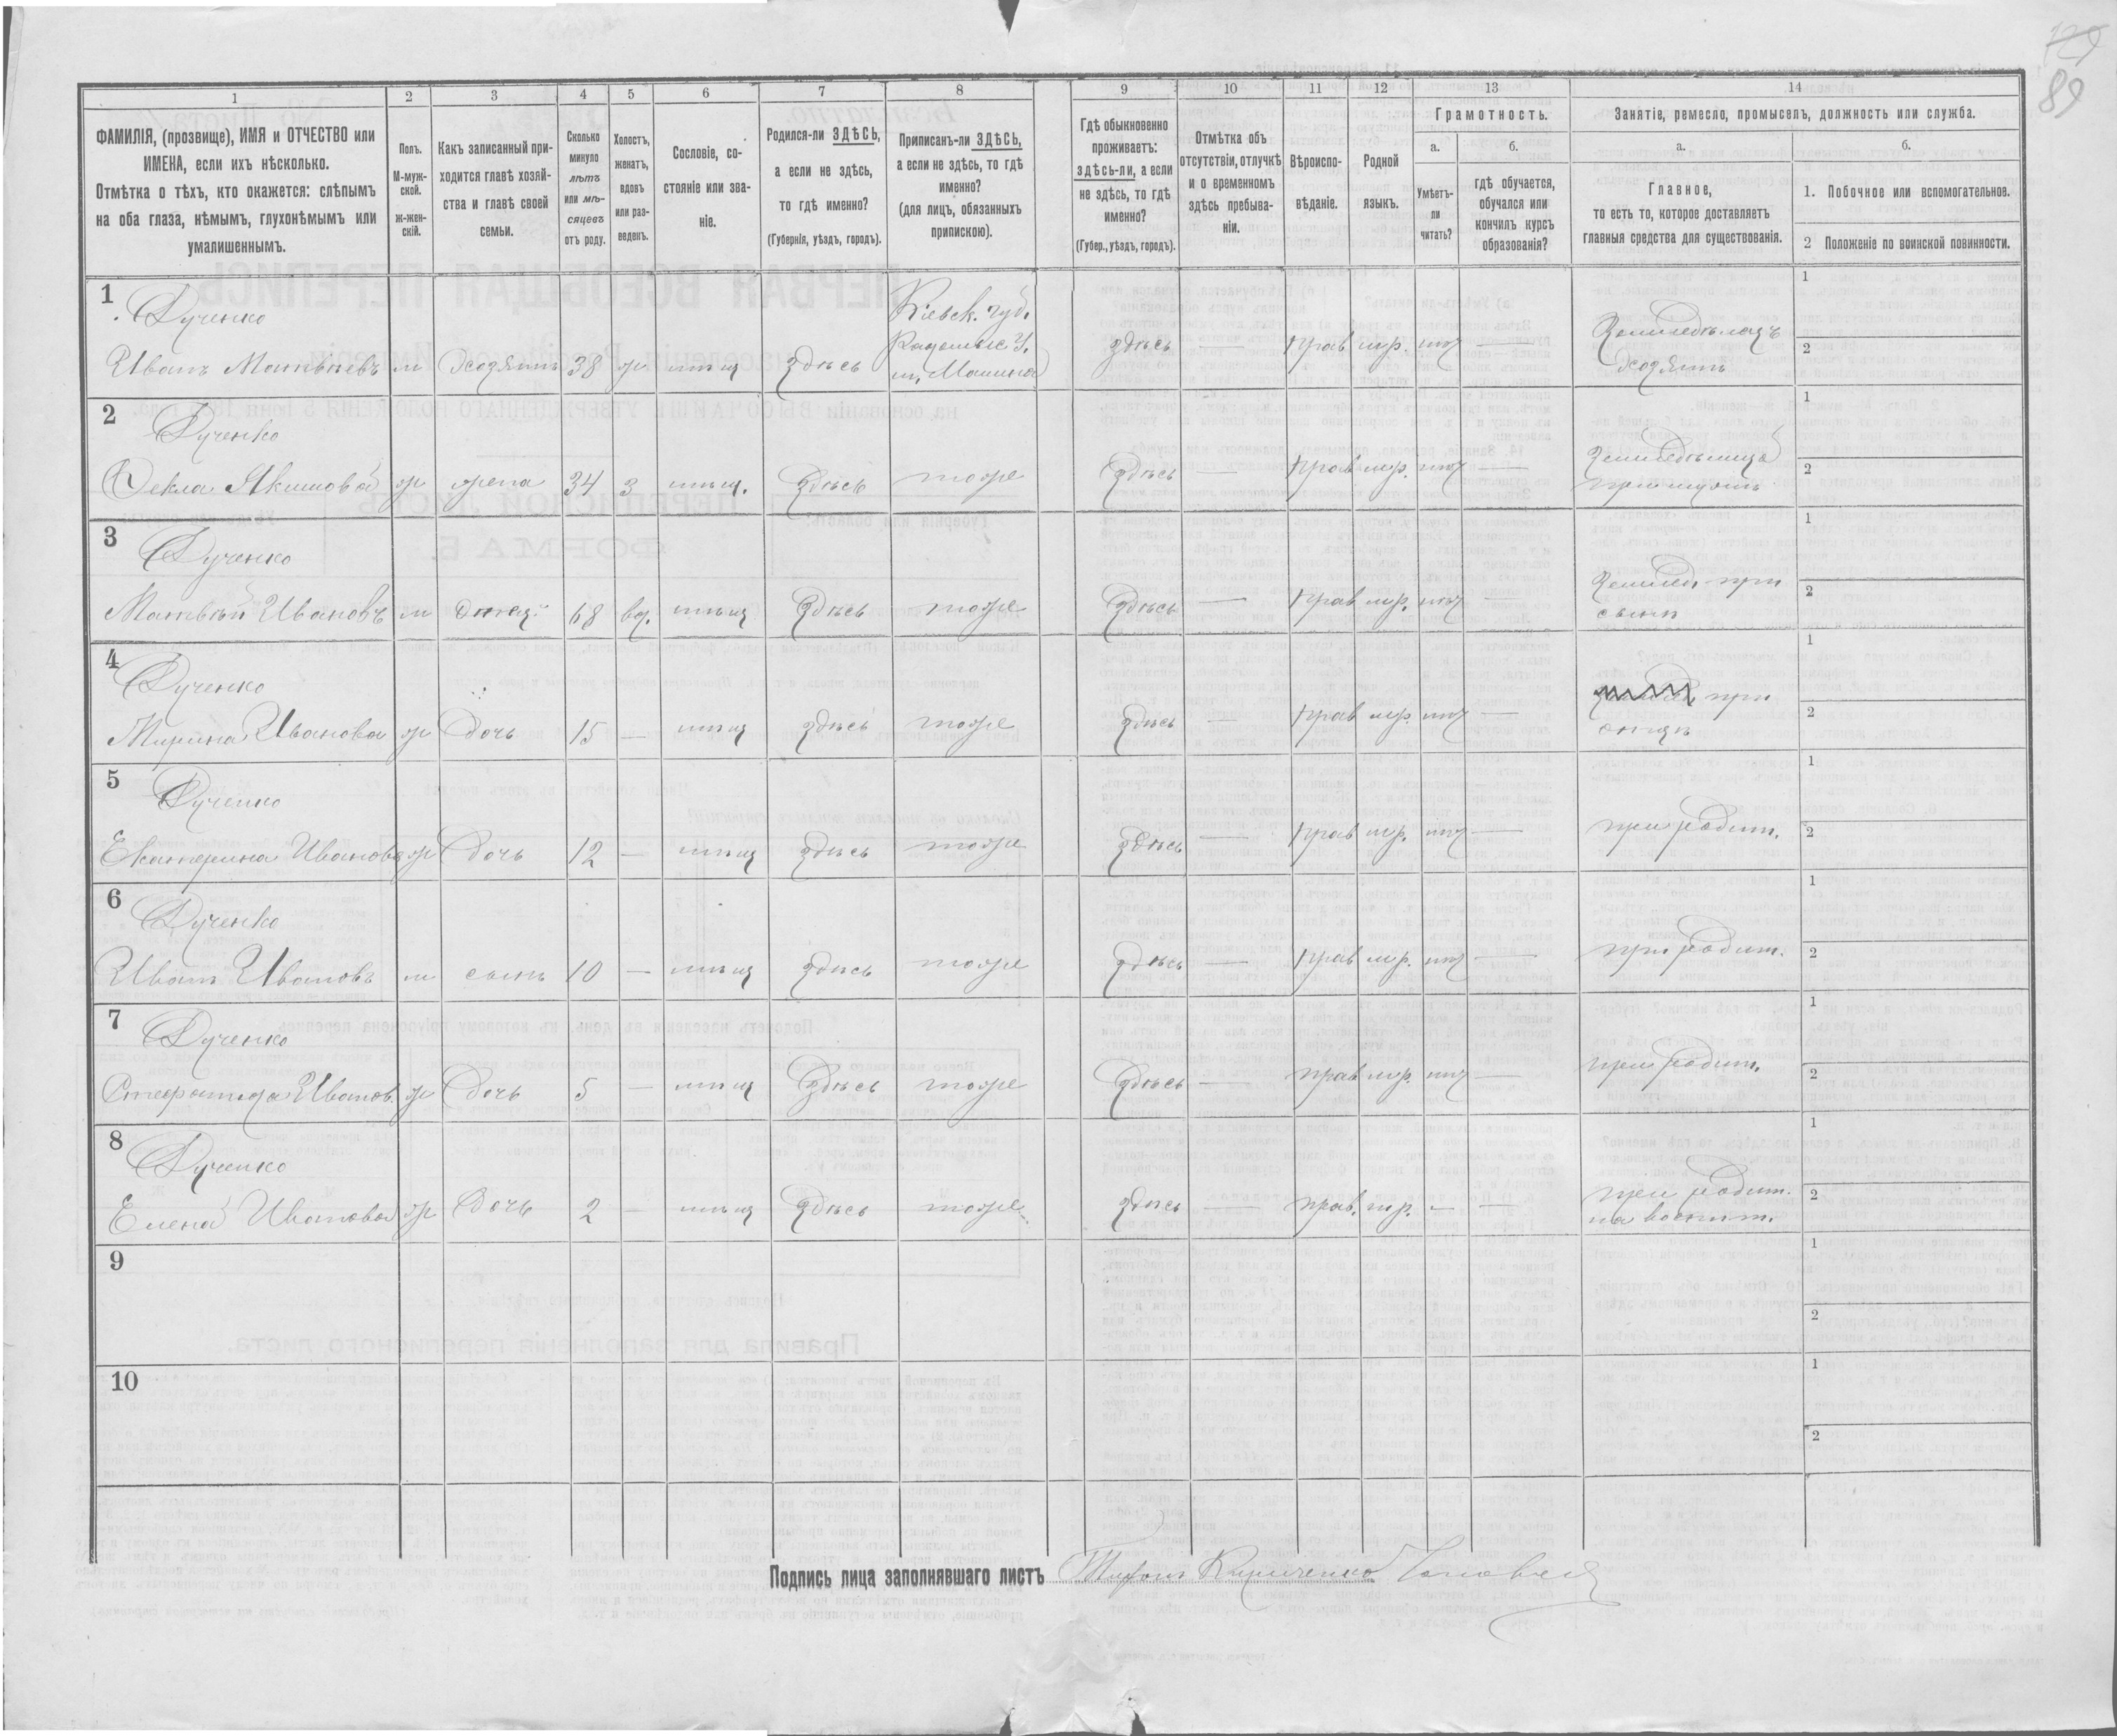 129
89
1
2
3
4
5
6
7
8
9
10
11
12
13
14
ФАМИЛІЯ, (прозвище), ИМЯ и ОТЧЕСТВО или
ИМЕНА, если ихъ нѣсколько.
Отмѣтка о тѣхъ, кто окажется: слѣпымъ
на оба глаза, нѣмымъ, глухонѣмымъ или
умалишеннымъ.
Полъ.
М-муж-
ской.
ж-жен-
скій.
Какъ записанный при-
ходится главѣ хозяй-
ства и главѣ своей
семьи.
Сколько
минуло
лѣтъ
или мѣ-
сяцевъ
отъ роду.
Холостъ,
женатъ,
вдовъ
или раз-
веденъ.
Сословіе, со-
стояніе или зва-
ніе.
Родился-ли ЗДѢСЬ,
а если не здѣсь,
то гдѣ именно?
(Губернія, уѣздъ, городъ).
Приписанъ-ли ЗДѢСЬ,
а если не здѣсь, то гдѣ
именно?
(для лицъ, обязанныхъ
припискою).
Гдѣ обыкновенно
проживаетъ:
здѣсь-ли, а если
не здѣсь, то гдѣ
именно?
(Губер., уѣздъ, городъ).
Отмѣтка объ
отсутствіи, отлучкѣ
и о временномъ
здѣсь пребыва-
ніи.
Вѣроиспо-
вѣданіе.
Родной
языкъ.
Грамотность.
а.
Умѣетъ-
ли
читать?
б.
гдѣ обучается,
обучался или
кончилъ курсъ
образованія?
Занятіе, ремесло, промыселъ, должность или служба.
а.
Главное,
то есть то, которое доставляетъ
главныя средства для существованія.
б.
1. Побочное или вспомогательное.
2 Положеніе по воинской повинности.
1
Дученко
Иванъ Матвѣевъ м Хозяинъ 38 ж мѣщ здѣсь
Кіевск. губ.
Радомыс У.
м. Малина
здѣсь — прав мр. нѣт —
Земледѣлецъ
Хозяинъ
1
2
2
Дученко
Фекла Якимова ж жена 34 з мѣщ. Здѣсь тоже Здѣсь — прав мр. нѣт —
Земледѣлица
при мужѣ
1
2
3
Дученко
Матвѣй Ивановъ м Отец 68 вд. мѣщ Здѣсь тоже Здѣсь — прав мр. нѣт —
Землед. при
сынѣ
1
2
4
Дученко
Марина Иванова ж Дочь 15 — мѣщ здѣсь тоже здѣсь — прав мр. нѣт —
при
отцѣ
1
2
5
Дученко
Екатерина Иванова ж Дочь 12 — мѣщ здѣсь тоже Здѣсь — прав мр. нѣт —
при родит.
1
2
6
Дученко
Иванъ Ивановъ м сынъ 10 — мѣщ здѣсь тоже здѣсь — прав мр. нѣт —
при родит.
1
2
7
Дученко
Степанида Иванов. ж Дочь 5 — мѣщ Здѣсь тоже Здѣсь — прав мр. нѣт —
при родит.
1
2
8
Дученко
Елена Иванова ж Дочь 2 — мѣщ Здѣсь тоже здѣсь — прав. мр. — —
при родит.
на воспит.
1
2
9
1
2
10
1
2
Подпись лица заполнявшаго листъ